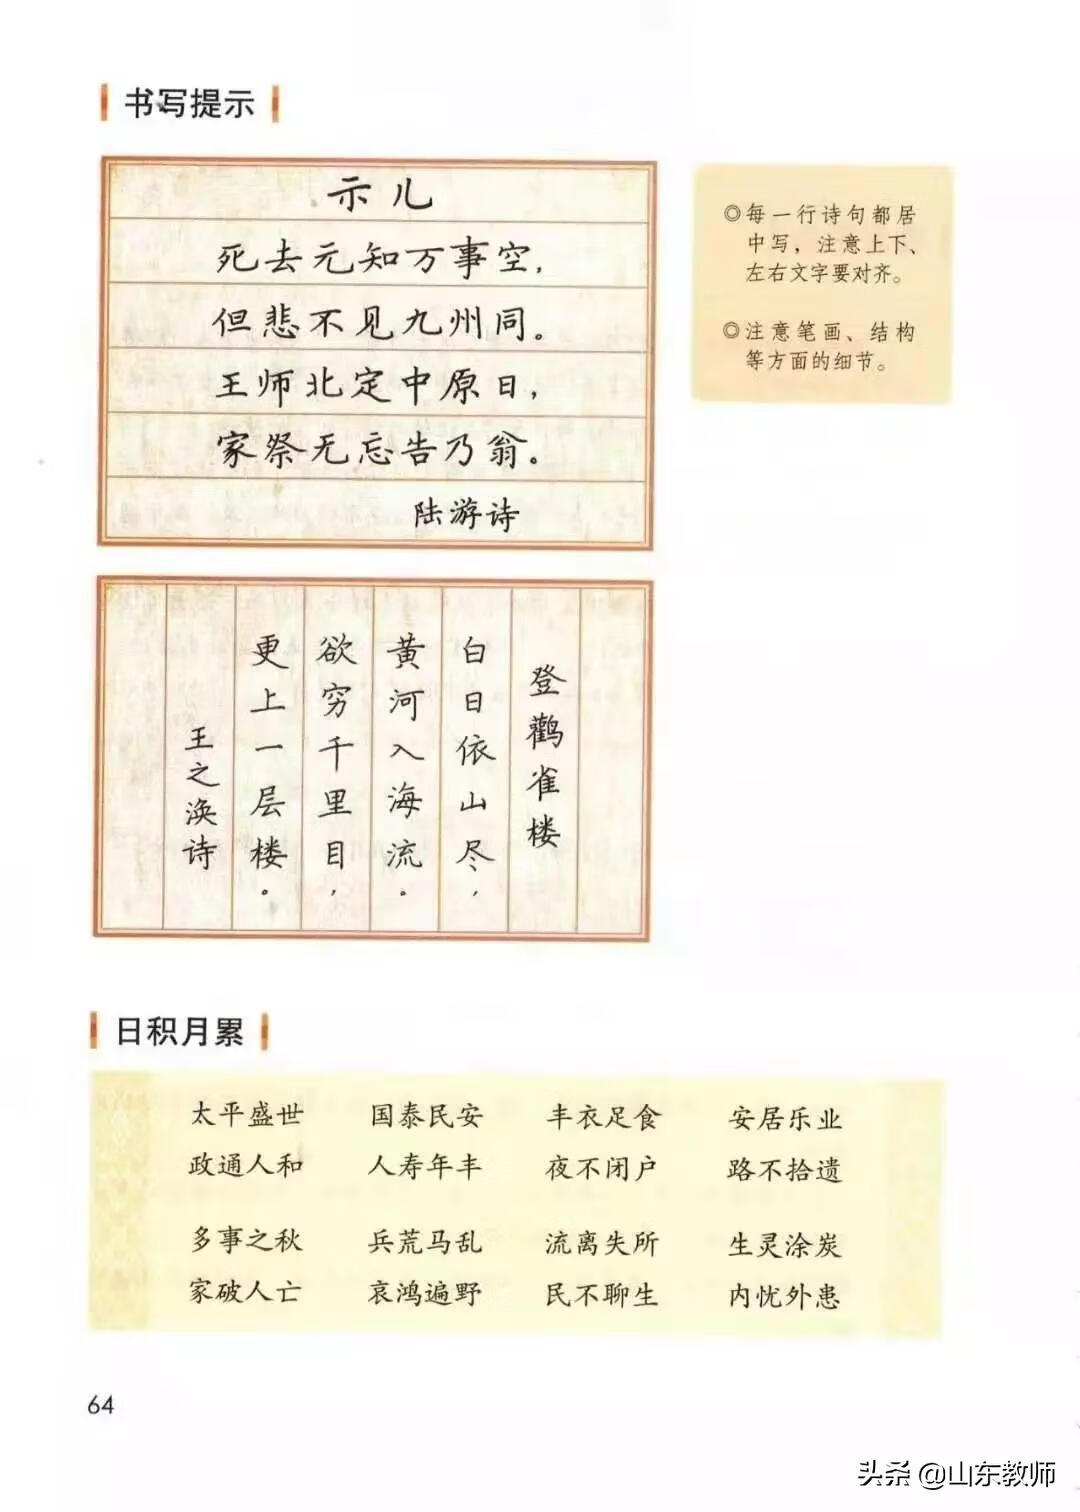 书写提示
示儿
死去元知万事空，
但悲不见九州同。
王师北定中原日，
家祭无忘告乃翁。
陆游诗
◎每一行诗句都居
中写，注意上下、
左右文字要对齐。
◎注意笔画、结构
等方面的细节。
登鹳雀楼
白日依山尽，
黄河入海流。
欲穷千里目，
更上一层楼。
王之涣诗
日积月累
太平盛世 国泰民安 丰衣足食 安居乐业
政通人和 人寿年丰 夜不闭户 路不拾遗
多事之秋 兵荒马乱 流离失所 生灵涂炭
家破人亡 哀鸿遍野 民不聊生 内忧外患
64
头条 @山东教师